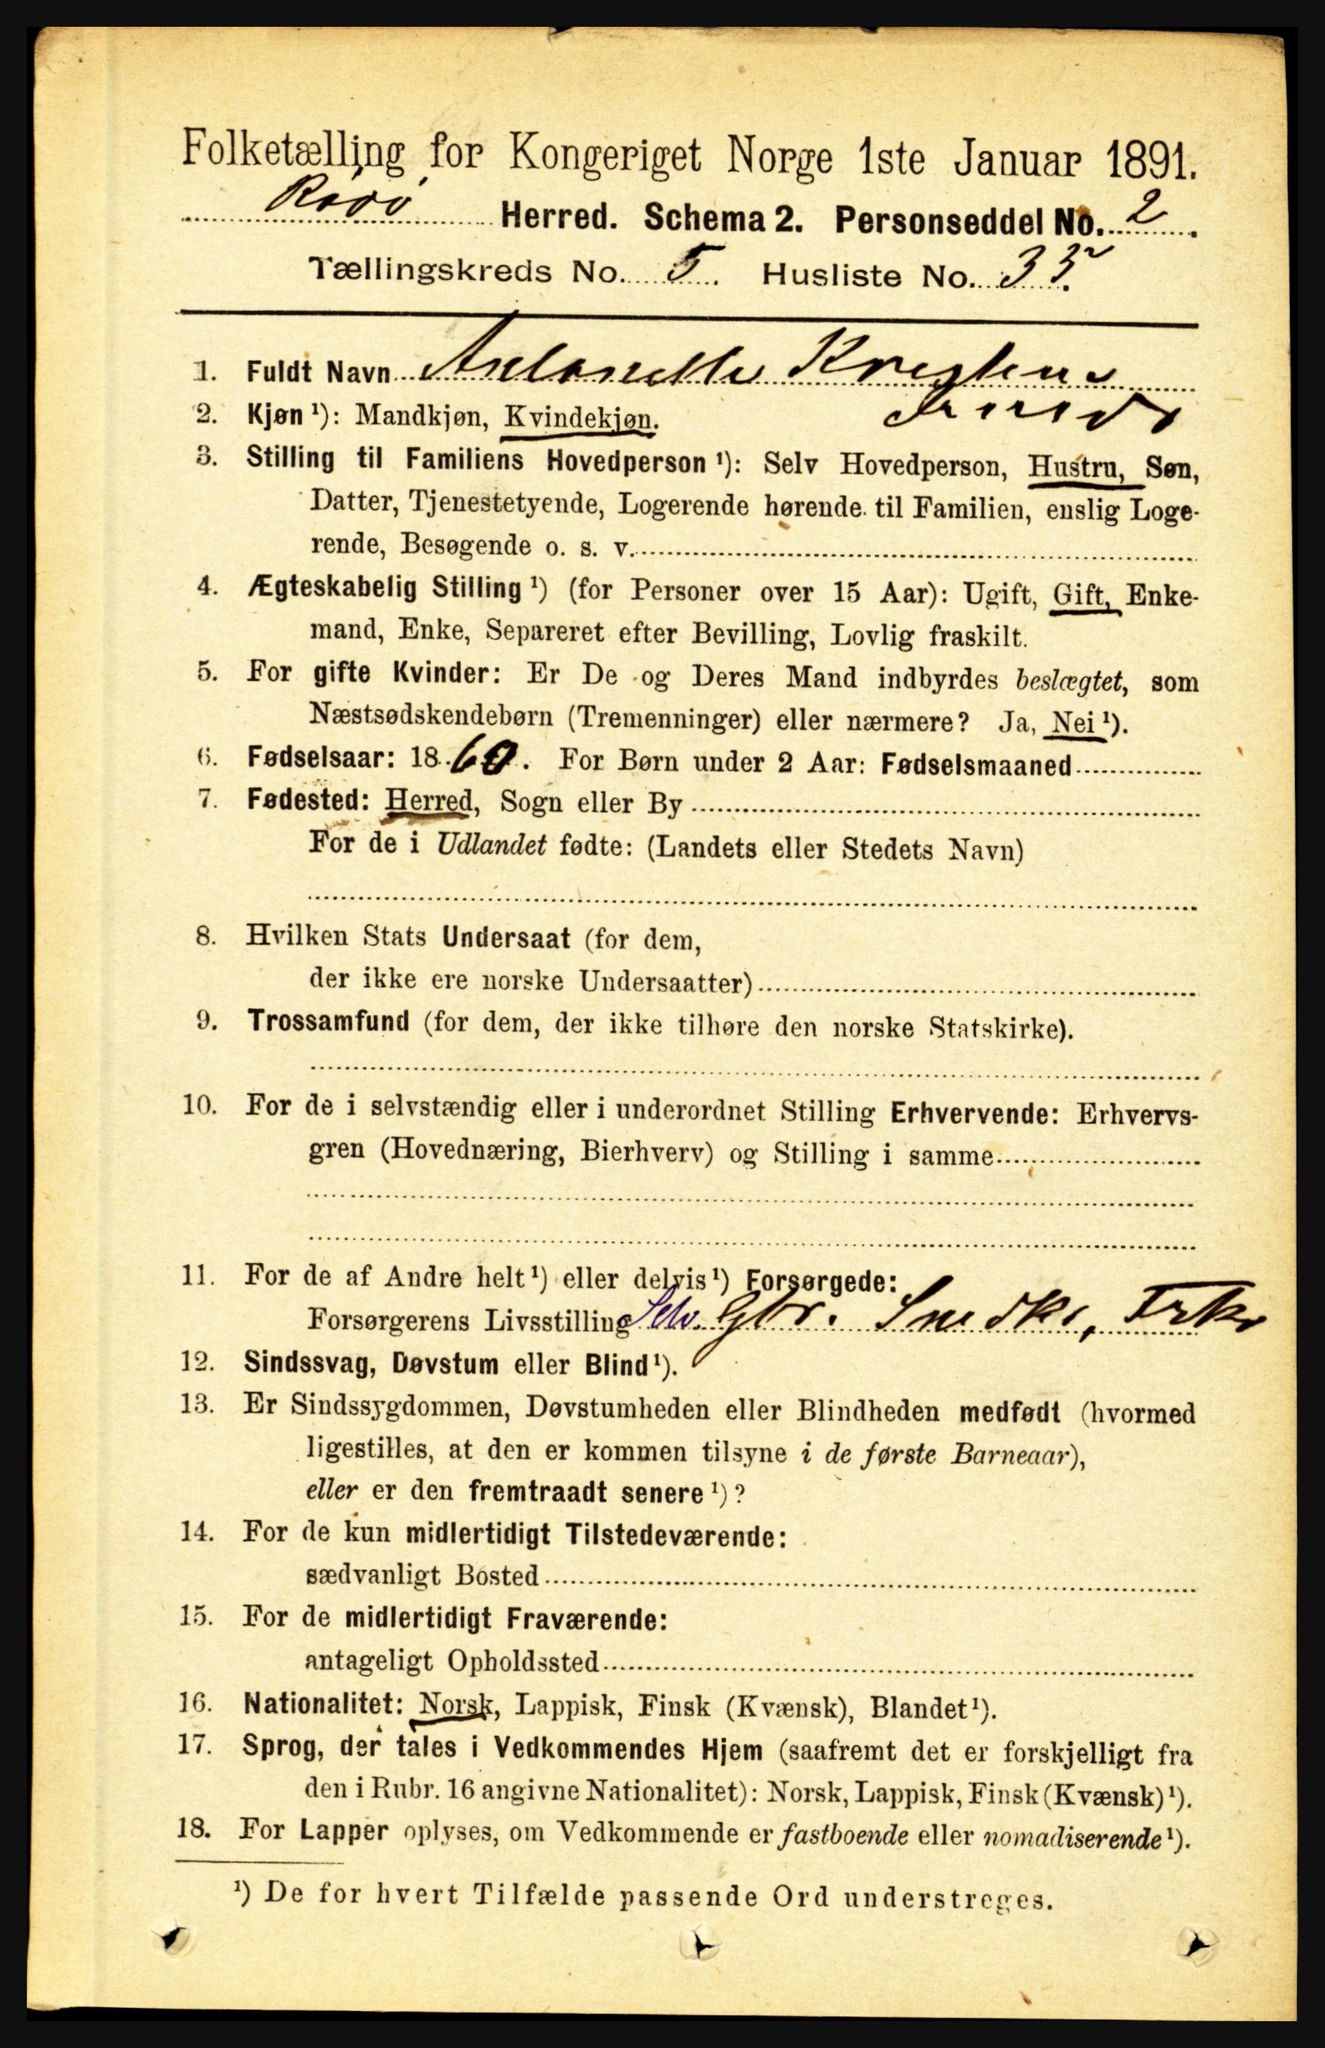 Folketælling for Kongeriget Norge 1ste Januar 1891.
Rödö Herred. Schema 2. Personseddel No. 2.
Tællingskreds No. 5. Husliste No. 35.
1. Fuldt Navn
2. Kjøn ¹): Mandkjøn, Kvindekjøn.
3. Stilling til Familiens Hovedperson ¹): Selv Hovedperson, Hustru, Søn,
Datter, Tjenestetyende, Logerende hørende til Familien, enslig Loge-
rende, Besøgende o. s. v.
4. Ægteskabelig Stilling ¹) (for Personer over 15 Aar): Ugift, Gift, Enke-
mand, Enke, Separeret efter Bevilling, Lovlig fraskilt.
5. For gifte Kvinder: Er De og Deres Mand indbyrdes beslægtet, som
Næstsødskendebørn (Tremenninger) eller nærmere? Ja, Nei ¹).
6. Fødselsaar: 1860. For Børn under 2 Aar: Fødselsmaaned
7. Fødested: Herred, Sogn eller By
For de i Udlandet fødte: (Landets eller Stedets Navn)
8. Hvilken Stats Undersaat (for dem,
der ikke ere norske Undersaatter)
9. Trossamfund (for dem, der ikke tilhøre den norske Statskirke).
10. For de i selvstændig eller i underordnet Stilling Erhvervende: Erhvervs-
gren (Hovednæring, Bierhverv) og Stilling i samme
11. For de af Andre helt ¹) eller delvis ¹) Forsørgede:
Forsørgerens Livsstilling Selv. Gbr.
12. Sindssvag, Døvstum eller Blind ¹).
13. Er Sindssygdommen, Døvstumheden eller Blindheden medfødt (hvormed
ligestilles, at den er kommen tilsyne i de første Barneaar),
eller er den fremtraadt senere ¹)?
14. For de kun midlertidigt Tilstedeværende:
sædvanligt Bosted
15. For de midlertidigt Fraværende:
antageligt Opholdssted
16. Nationalitet: Norsk, Lappisk, Finsk (Kvænsk), Blandet ¹).
17. Sprog, der tales i Vedkommendes Hjem (saafremt det er forskjelligt fra
den i Rubr. 16 angivne Nationalitet): Norsk, Lappisk, Finsk (Kvænsk) ¹).
18. For Lapper oplyses, om Vedkommende er fastboende eller nomadiserende ¹).
¹) De for hvert Tilfælde passende Ord understreges.